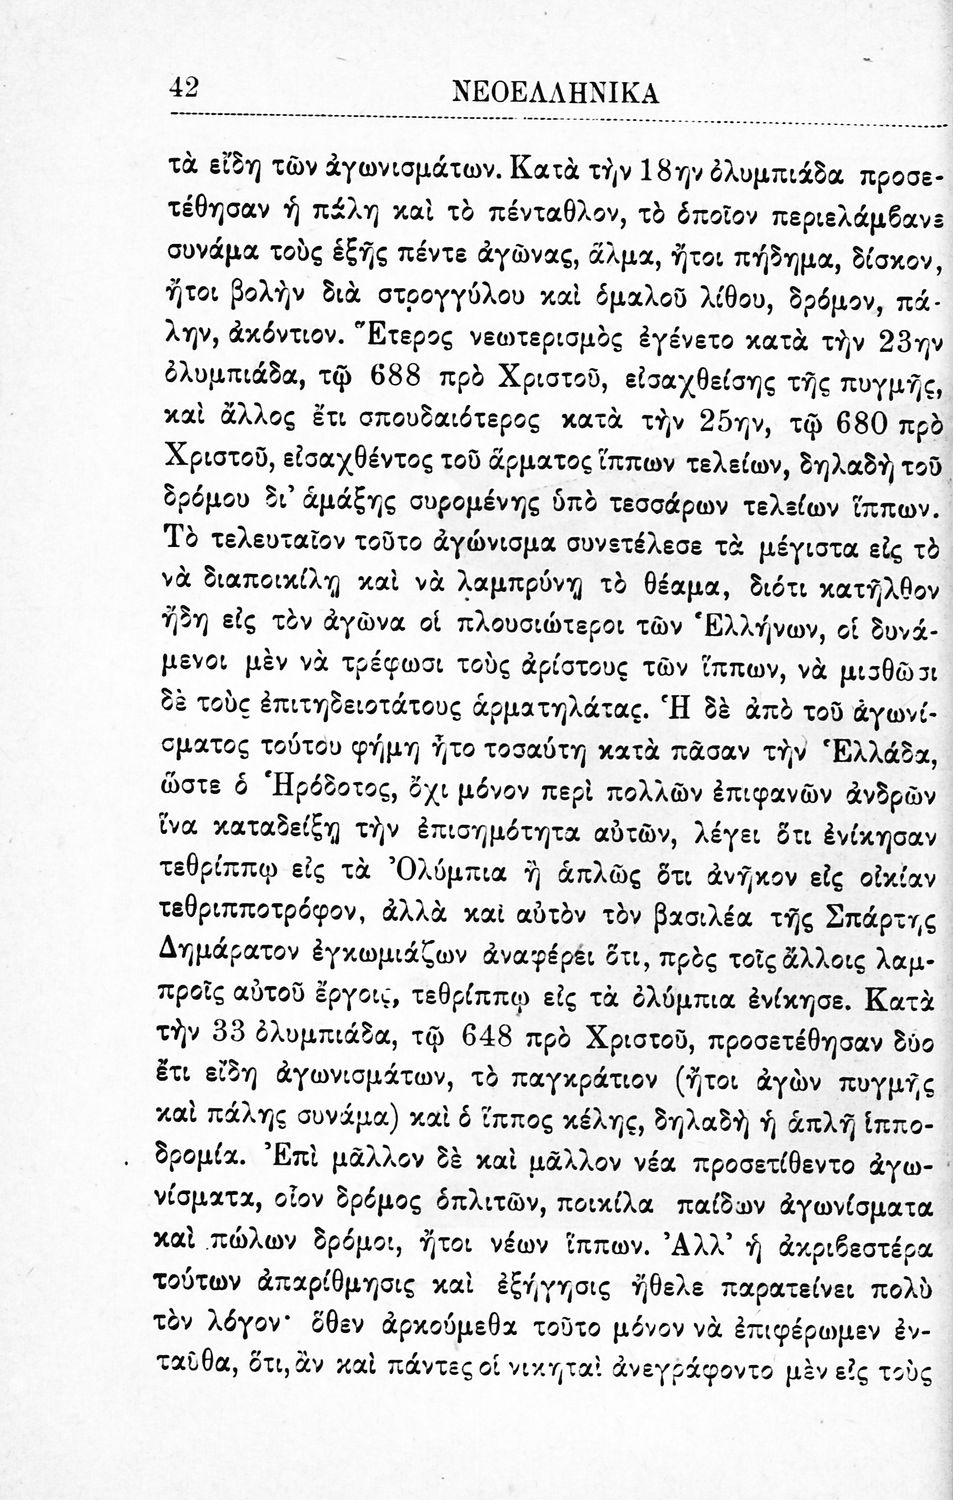 42 ΝΕΟΕΛΛΗΝΙΚΑ
τὰ εἴδη τῶν ἀγωνισμάτων. Κατὰ τὴν 18ην ὀλυμπιάδα προσε-
τέθησαν ἡ πάλη καὶ τὸ πένταθλον, τὸ ὁποῖον περιελάμβανε
συνάμα τοὺς ἑξῆς πέντε ἀγῶνας, ἅλμα, ἤτοι πήδημα, δίσκον,
ἤτοι βολὴν διὰ στρογγύλου καὶ ὁμαλοῦ λίθου, δρόμον, πά-
λην, ἀκόντιον. Ἕτερος νεωτερισμὸς ἐγένετο κατὰ τὴν 23ην
ὀλυμπιάδα, τῷ 688 πρὸ Χριστοῦ, εἰσαχθείσης τῆς πυγμῆς,
καὶ ἄλλος ἔτι σπουδαιότερος κατὰ τὴν 25ην, τῷ 680 πρὸ
Χριστοῦ, εἰσαχθέντος τοῦ ἅρματος ἵππων τελείων, δηλαδὴ τοῦ
δρόμου δι’ ἁμάξης συρομένης ὑπὸ τεσσάρων τελείων ἵππων.
Τὸ τελευταῖον τοῦτο ἀγώνισμα συνετέλεσε τὰ μέγιστα εἰς τὸ
νὰ διαποικίλῃ καὶ νὰ λαμπρύνῃ τὸ θέαμα, διότι κατῆλθον
ἤδη εἰς τὸν ἀγῶνα οἱ πλουσιώτεροι τῶν Ἑλλήνων, οἱ δυνά-
μενοι μὲν νὰ τρέφωσι τοὺς ἀρίστους τῶν ἵππων, νὰ μισθῶσι
δὲ τοὺς ἐπιτηδειοτάτους ἁρματηλάτας. Ἡ δὲ ἀπὸ τοῦ ἀγωνί-
σματος τούτου φήμη ἦτο τοσαύτη κατὰ πᾶσαν τὴν Ἑλλάδα,
ὥστε ὁ Ἡρόδοτος, ὄχι μόνον περὶ πολλῶν ἐπιφανῶν ἀνδρῶν
ἵνα καταδείξῃ τὴν ἐπισημότητα αὐτῶν, λέγει ὅτι ἐνίκησαν
τεθρίππῳ εἰς τὰ Ὀλύμπια ἢ ἁπλῶς ὅτι ἀνῆκον εἰς οἰκίαν
τεθριπποτρόφον, ἀλλὰ καὶ αὐτὸν τὸν βασιλέα τῆς Σπάρτης
Δημάρατον ἐγκωμιάζων ἀναφέρει ὅτι, πρὸς τοῖς ἄλλοις λαμ-
προῖς αὐτοῦ ἔργοις, τεθρίππῳ εἰς τὰ ὀλύμπια ἐνίκησε. Κατὰ
τὴν 33 ὀλυμπιάδα, τῷ 648 πρὸ Χριστοῦ, προσετέθησαν δύο
ἔτι εἴδη ἀγωνισμάτων, τὸ παγκράτιον (ἤτοι ἀγὼν πυγμῆς
καὶ πάλης συνάμα) καὶ ὁ ἵππος κέλης, δηλαδὴ ἡ ἁπλῆ ἱππο-
δρομία. Ἐπὶ μᾶλλον δὲ καὶ μᾶλλον νέα προσετίθεντο ἀγω-
νίσματα, οἷον δρόμος ὁπλιτῶν, ποικίλα παίδων ἀγωνίσματα
καὶ πώλων δρόμοι, ἤτοι νέων ἵππων. Ἀλλ’ ἡ ἀκριβεστέρα
τούτων ἀπαρίθμησις καὶ ἐξήγησις ἤθελε παρατείνει πολὺ
τὸν λόγον· ὅθεν ἀρκούμεθα τοῦτο μόνον νὰ ἐπιφέρωμεν ἐν-
ταῦθα, ὅτι, ἂν καὶ πάντες οἱ νικηταὶ ἀνεγράφοντο μὲν εἰς τοὺς